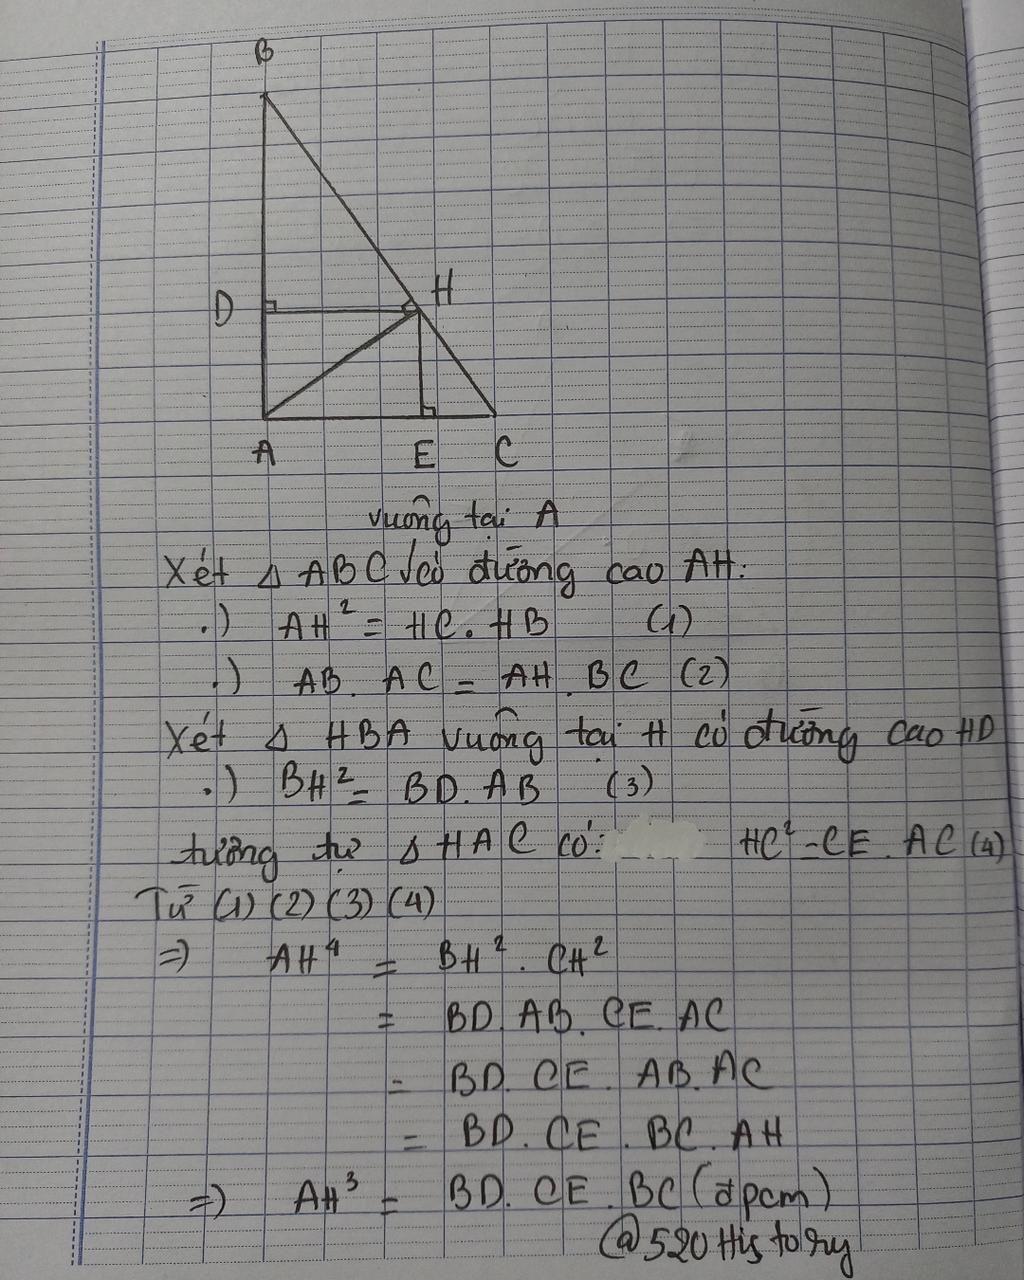 B
D
H
A E C
vuông tại A
Xét Δ ABC √có đường cao AH:
.) AH² = HC. HB (1)
.) AB. AC = AH. BC (2)
Xét Δ HBA vuông tại H có đường cao HD
.) BH² = BD. AB (3)
tương tự Δ HAC có: HC² = CE. AC (4)
Từ (1) (2) (3) (4)
=) AH⁴ = BH². CH²
= BD. AB. CE. AC
= BD. CE. AB. AC
= BD. CE. BC. AH
=) AH³ = BD. CE. BC (đpcm)
@520 History